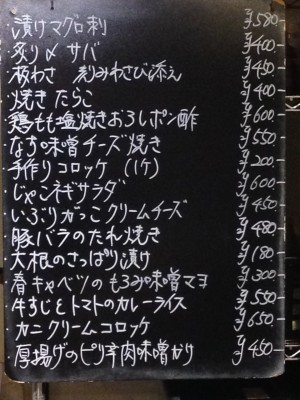 漬けマグロ刺 ¥580-
炙り〆サバ ¥400-
板わさ 刻みわさび添え ¥450-
焼きたらこ ¥400-
鶏もも塩焼きおろしポン酢 ¥600-
なす味噌チーズ焼き ¥550-
手作りコロッケ (1ケ) ¥200-
じゃこネギサラダ ¥600-
いぶりがっこクリームチーズ ¥450-
豚バラのたれ焼き ¥480-
大根のさっぱり漬け ¥180
春キャベツのもろみ味噌マヨ ¥300-
牛すじとトマトのカレーライス ¥550-
カニクリームコロッケ ¥650-
厚揚げのピリ辛肉味噌がけ ¥450-